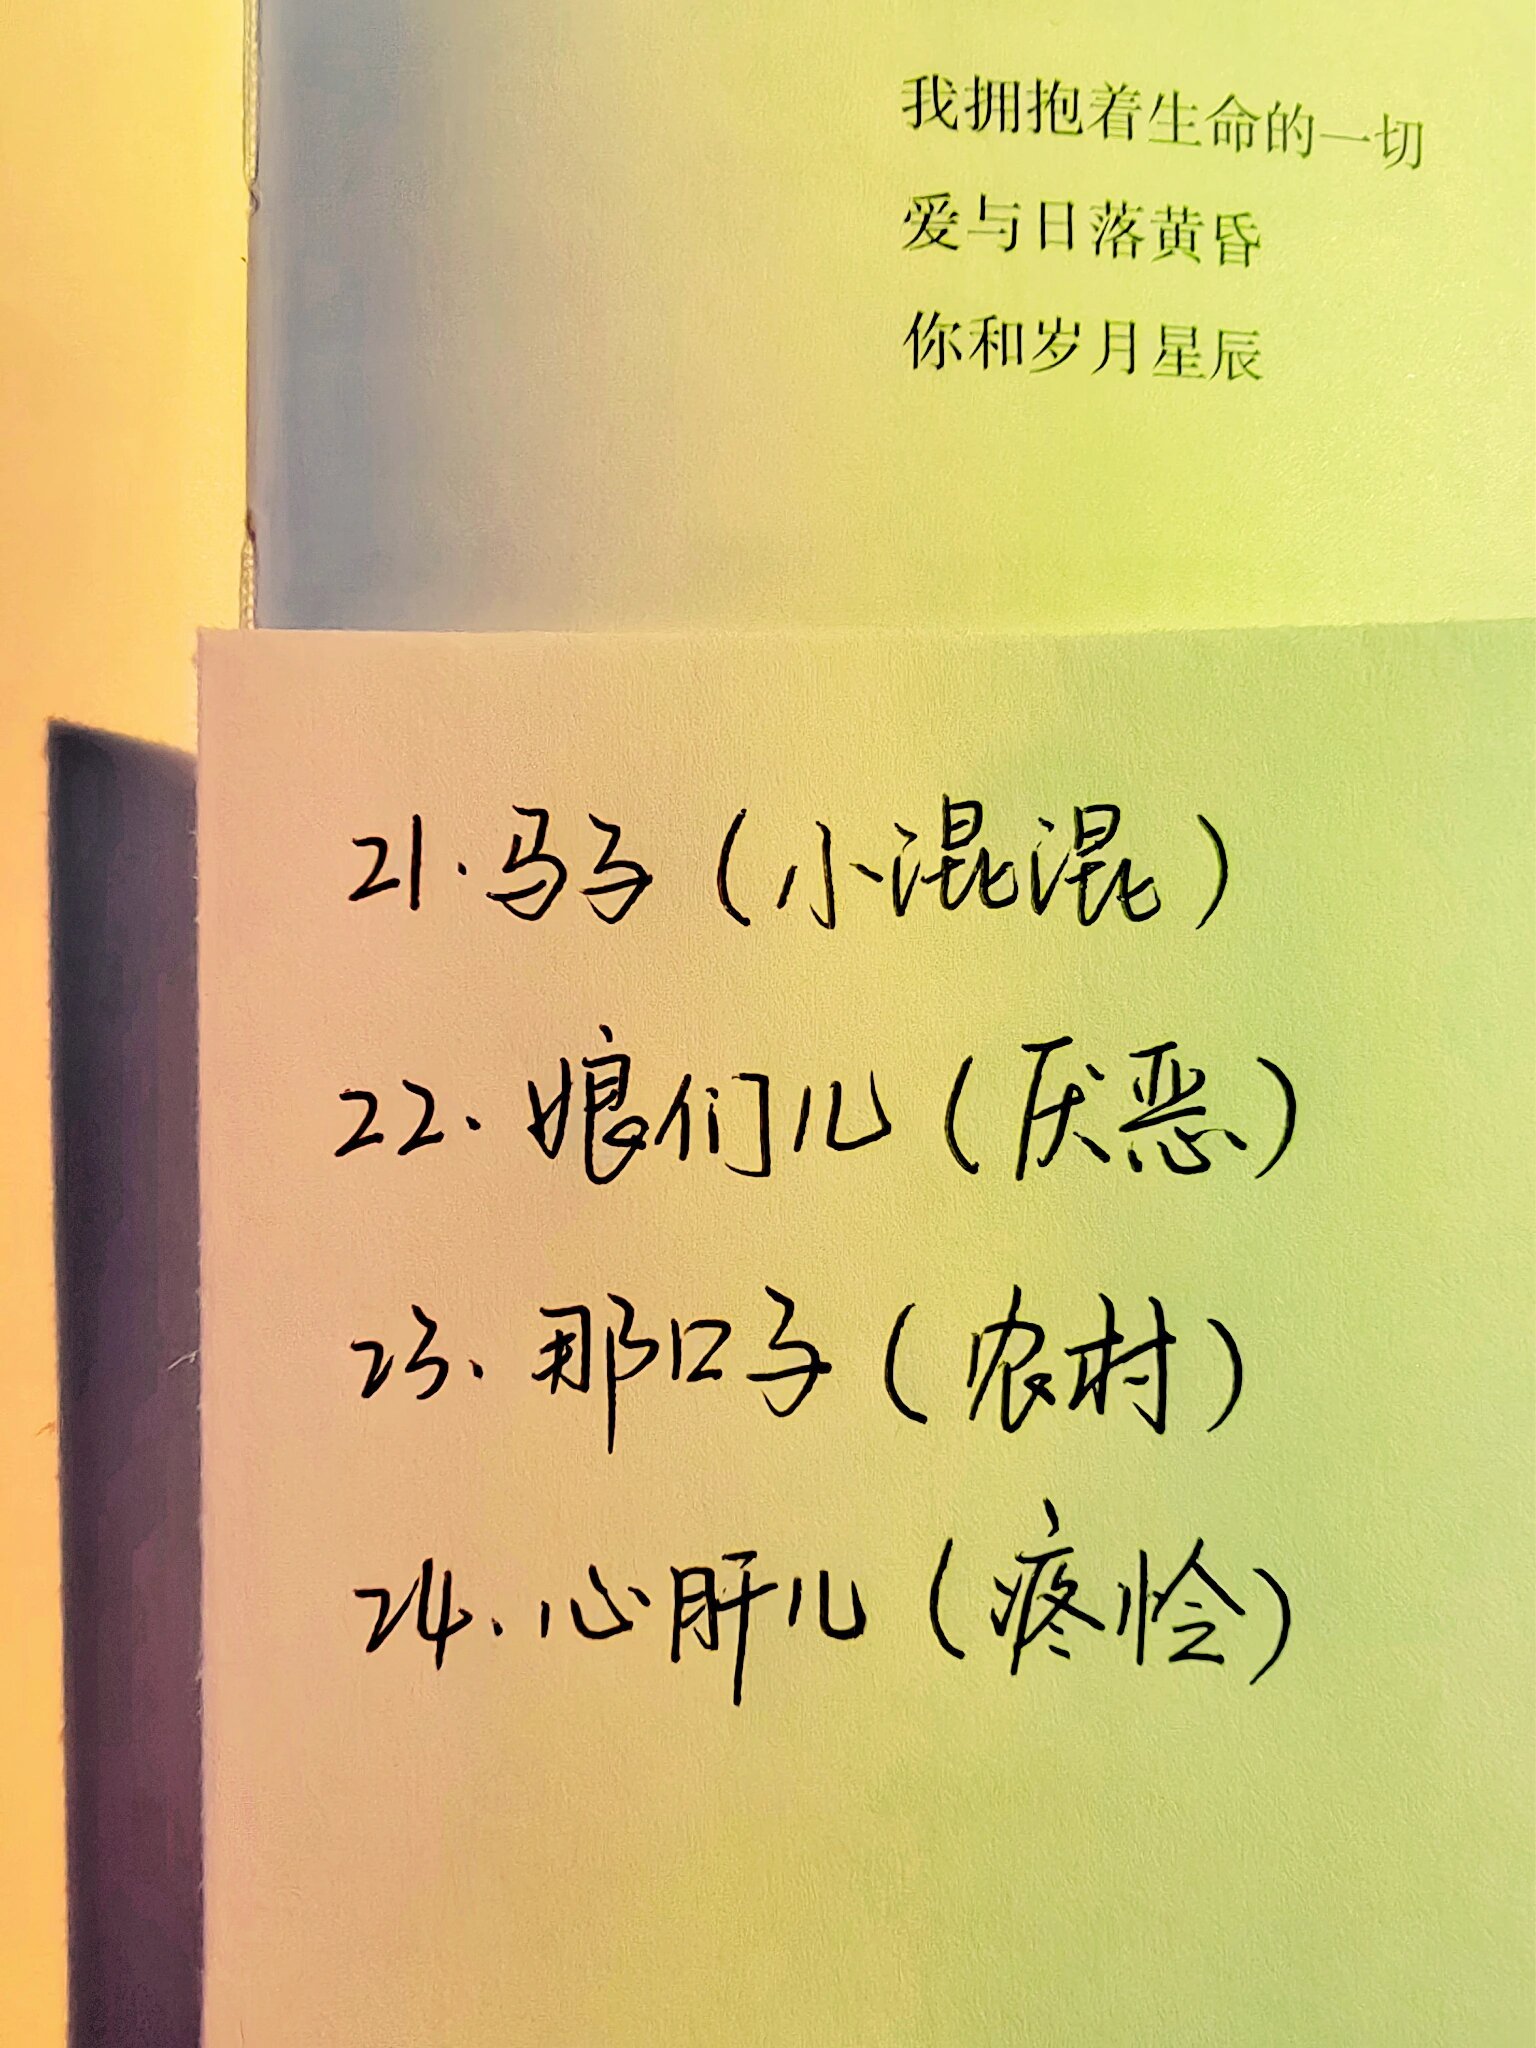 我拥抱着生命的一切
爱与日落黄昏
你和岁月星辰
21.马子(小混混)
22.娘们儿(厌恶)
23.那口子(农村)
24.心肝儿(疼怜)